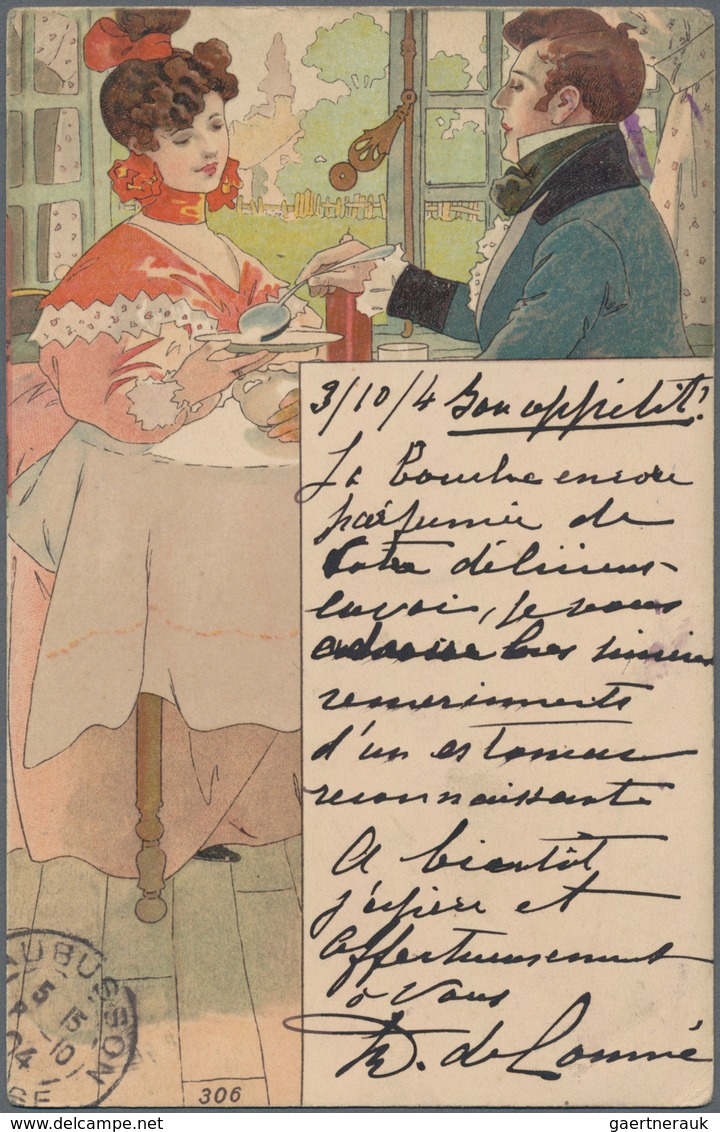 3/10/4 Bon appétit!
La bouche encore
parfumée de
votre délicieux
envoi, je vous
adresse les sincères
remerciments
d'un estomac
reconnaissant
A bientôt
j'espère et
affectueusement
à vous
de
AUBUSSON
5 15
10
04
SE
306
gaertnerauk